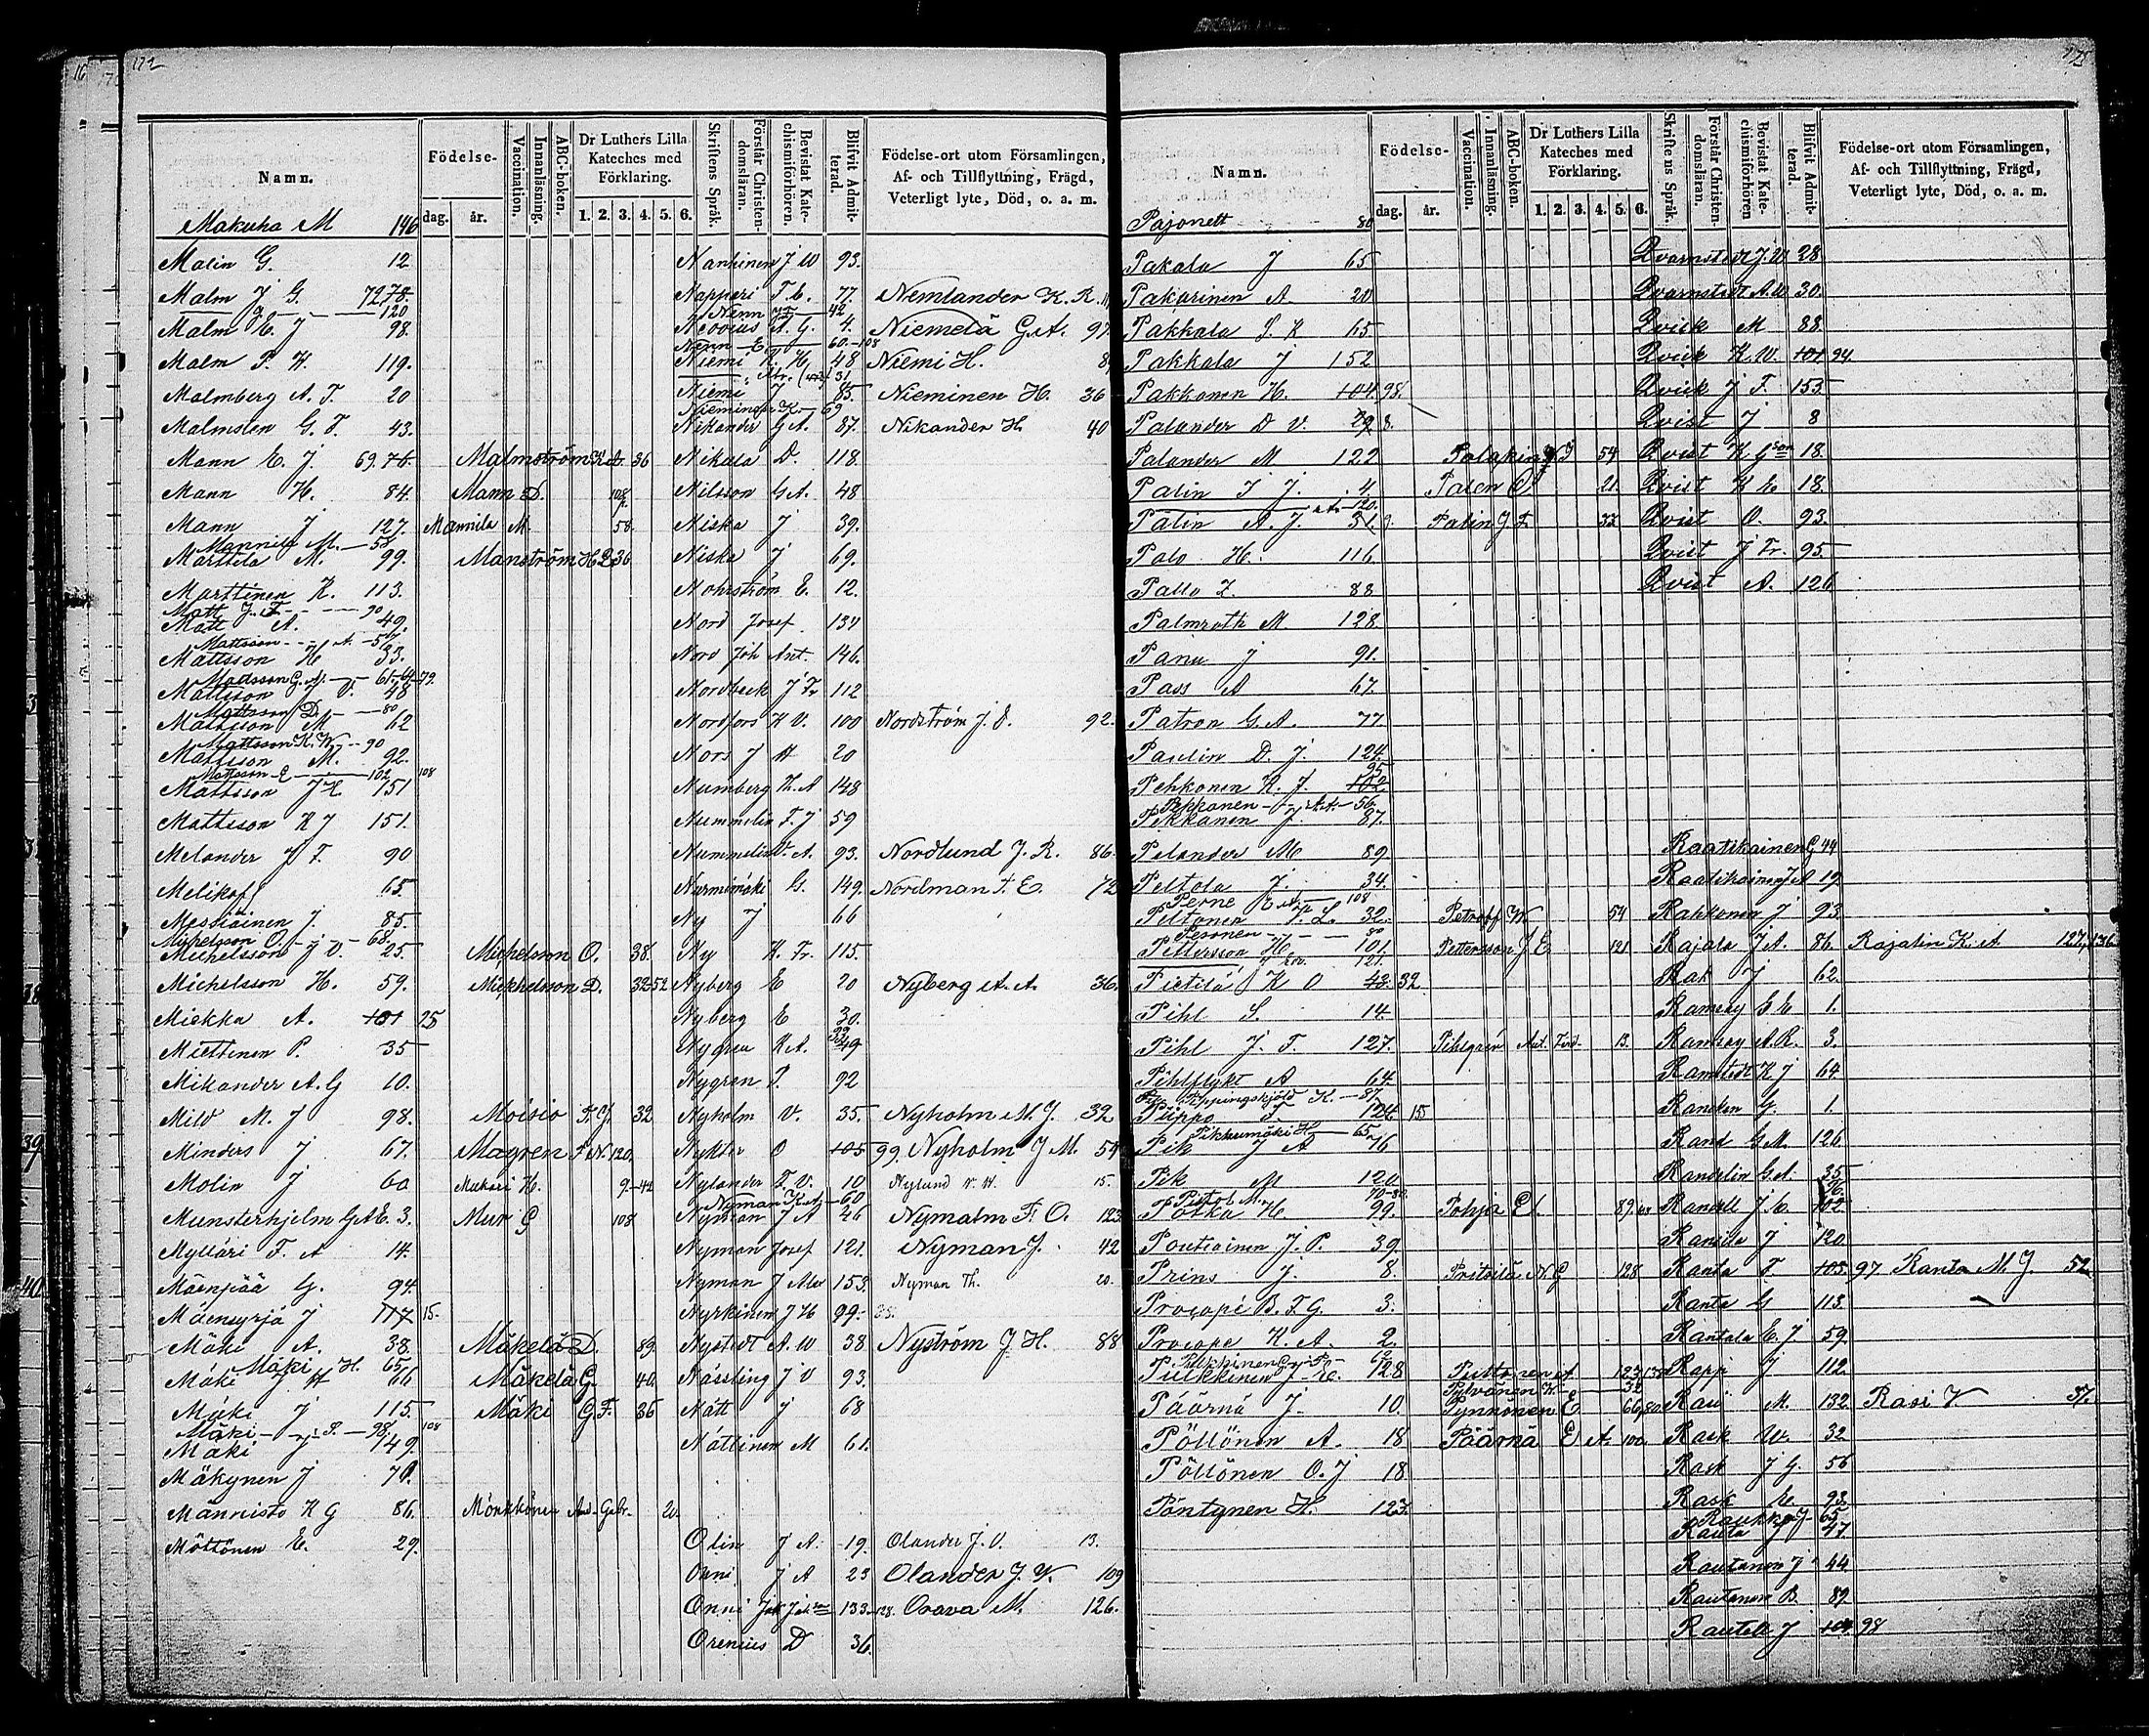 172
Namn.
Födelse-
dag.
år.
Vaccination.
Innanläsning.
ABC-boken.
Dr Luthers Lilla
Kateches med
Förklaring.
1. 2. 3. 4. 5. 6.
Skriftens Språk.
Förstår Christen-
domsläran.
Bevistat Kate-
chismiförhören.
Blifvit Admit-
terad.
Födelse-ort utom Församlingen,
Af- och Tillflyttning, Frägd,
Veterligt lyte, Död, o. a. m.
Makuha M 146
Malin G. 12
Malm J G. 72 78.
120
Malm E J 98.
Malm P. H. 119.
Malmberg A. F. 20
Malmsten G. F. 43.
Mann E. J. 69. 76.
Mann H. 84.
Mann J 127.
Mannila M. 58
Marttila M. 99.
Marttinen K. 113.
Matt J. F. 90
Matt A. 49.
Mattsson A. 57
Mattsson H 33.
Madsson G. A. 61-64-79.
Mattsson J V. 48
Mattsson D. 80
Mattsson M 62
Mattsson K. W. 90
Mattsson M. 92.
Mattsson E 102 108
Mattsson J E 151
Mattsson K J 151.
Melander J F. 90
Melikof 65.
Messiäinen J. 85.
Michelsson O. 68.
Michelsson J V. 25.
Michelsson H. 59.
Miekka A. 101 25
Miettinen P. 35
Mikander A. G 10.
Mild M. J 98.
Minders J 67.
Molin J 60
Munsterhjelm G A E. 3.
Mylläri F. A 14.
Mäenpää G. 94.
Mäensyrjä J 117 15.
Mäki A. 38.
Mäki H. 65
Mäki J H 66
Mäki J 115.
Mäki J. S. 98. 108
Mäki J 149.
Mäkynen J 70.
Männistö K G 86.
Möttönen E. 29.
Malmström K A 36
Mann D. 108
Mannila M. 58.
Manström H D 36
Michelsson O. 38.
Michelsson D. 32 52
Moisio F. J. 32
Mogren F N. 120.
Mukari H. 9-42
Mur G 108
Mäkelä D. 89.
Mäkelä G. 40.
Mäki G. F. 36
Mönkkönen And. Gabr. 20.
Nankinen J W 93.
Nappari T. E. 77.
Nenn J F 42
Neovius A. G. 4.
Nenn E 60.-108
Niemi K. H. 48
31
Niemi J 85.
Nieminen K 69
Nikander G A. 87.
Nikala D. 118.
Nilsson G A. 48
Niska J 39.
Niska J 69.
Nohrström E. 12.
Nord Josef 134
Nord Joh Ant. 146.
Nordbeck J Fr 112
Nordfors K V. 100
Nors J A 20
Numberg K. A 148
Nummelin F. J 59
Nummelin V. A. 93.
Nurmimäki G. 149.
Ny J 66
Ny K. Fr. 115.
Nyberg E 20
Nyberg E 30.
Nygren K A. 49
Nygren P. 92
Nyholm V. 35.
Nykter O 105 99
Nylander F. V. 10
Nyman K A 60
Nyman J A 26
Nyman Josef 121.
Nyman J Alex 153.
Nyrkinen J H 99.
Nystedt A. W 38.
Nässling J V 93.
Nätt J 68
Nättinen M 61.
Olin J A. 19.
Onni J A 23
Onni Joh Joh son 133-128.
Orenius D 36.
Nemlander K. R.
Niemelä G. A. 97.
Niemi H. 8
Nieminen H. 36
Nikander H. 40
Nordström J. E. 92.
Nordlund J. R. 86.
Nordman F. E. 72
Nyberg A. A. 36.
Nyholm M. J. 32
Nyholm J M. 54
Nylund V. H. 15.
Nymalm F. O. 123
Nyman J. 42
Nyman Th. 20.
Nyström J. H. 88
Olander J. V. 13.
Olander J. W. 109
Orava M. 126.
173
Namn.
Födelse-
dag.
år.
Vaccination.
Innanläsning.
ABC-boken.
Dr Luthers Lilla
Kateches med
Förklaring.
1. 2. 3. 4. 5. 6.
Skriftens Språk.
Förstår Christen-
domsläran.
Bevistat Kate-
chismiförhören
Blifvit Admit-
terad.
Födelse-ort utom Församlingen,
Af- och Tillflyttning, Frägd,
Veterligt lyte, Död, o. a. m.
Pajonett 80
Pakala J 65
Pakarinen A. 20
Pakkala S. K 65
Pakkala J 152
Pakkanen H. 104. 98.
Palander D V. 29 8.
Palander M 122
Palin J J. 4.
120.
Palin A. J. 31.
Palo H. 116.
Pallo Z. 88
Palmroth M 128.
Panu J 91.
Pass A 67.
Patron G. A. 77
Paulin D. J. 124.
95
Pehkonen K. J. 102
Pekkanen A. A. 56.
Pekkanen J 87.
Pelander M 89
Peltola J. 34.
Perne E. A. 108
Peltonen K. L. 32.
Pesonen 80
Pettersson H. 101
121.
Pietilä K O 42. 32
Pihl S. 14.
Pihl J. F. 127.
Pihlflykt A 64.
Pippingskjöld K. 87.
Piippo F. 124 15
Pikkumäki H 65.
Pik J A 76
Pik M 120
Pistol M. 70-80
Poika H. 99.
Poutiainen J. P. 39.
Prins J. 8.
Procopé B. F. G. 3.
Procope K. A. 2.
Pulkkinen 62
Pulkkinen J. E. 128
Päärnä J. 10.
Pöllönen A. 18
Pöllönen O. J 18
Pöntynen H. 123.
Polakin N J 54
Palen O. 21.
Palin J F. 33
Petroff W 54
Pettersson J E. 121
Pihlgrén Ant. Ferd. 13.
Pohja E. 89.
Pritsilä N. G 128
Puttonen A 123.
Pylvänen H. 32
Pynnönen E 66, 80
Päärnä E A. 100.
Qvarnstedt J. W 28
Qvarnstedt A. W 30.
Qvick M 88
Qvick K. W. 101 94.
Qvick J F. 153.
Qvist J 8
Qvist K G son 18.
Qvist K E. 18.
Qvist O. 93.
Qvist J Fr. 95
Qvist A. 126
Raatikainen G 44
Raatikainen J A 19
Rahkonen J 93.
Rajala J A. 86.
Rak J 62.
Ramsay G E 1.
Ramsay A. R. 3.
Ramstedt K J 64.
Rancken G. 1.
Rand G M. 126.
Randelin G. A. 35
Randell J E. 102
Ranki J 120
Ranta F. 105. 97
Ranta G 113.
Rantala E. J. 59.
Rapp J 112
Rasi M. 132
Rask W. 32
Rask J G. 56
Rask E. 93.
Raukko J 65
Rauta J 47
Rautanen J 44
Rautanen B. 89
Rautell J 104 98
Rajalin K. A 127, 136
Ranta M. J. 52
Rasi V. 57.